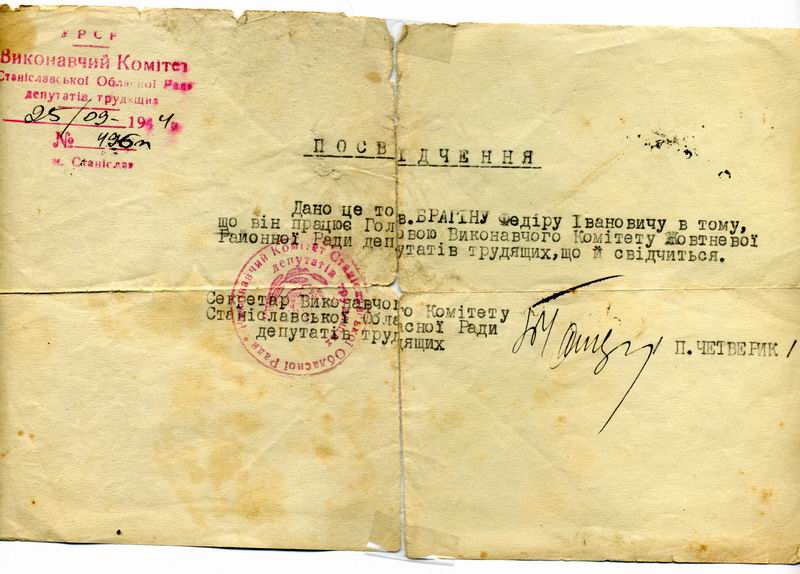 УРСР
Виконавчий Комітет
Станіславської Обласної Ради
депутатів трудящих
25/09- 1944 р
№ 496п
м. Станіслав
ПОСВІДЧЕННЯ
Дано це тов. БРАГІНУ Федіру Івановичу в тому,
що він працює Головою Виконавчого Комітету Жовтневої
Районної Ради депутатів трудящих, що й свідчиться.
Виконавчий Комітет Станіславської Обласної Ради
депутатів трудящих
Секретар Виконавчого Комітету
Станіславської Обласної Ради
депутатів трудящих
П. ЧЕТВЕРИК